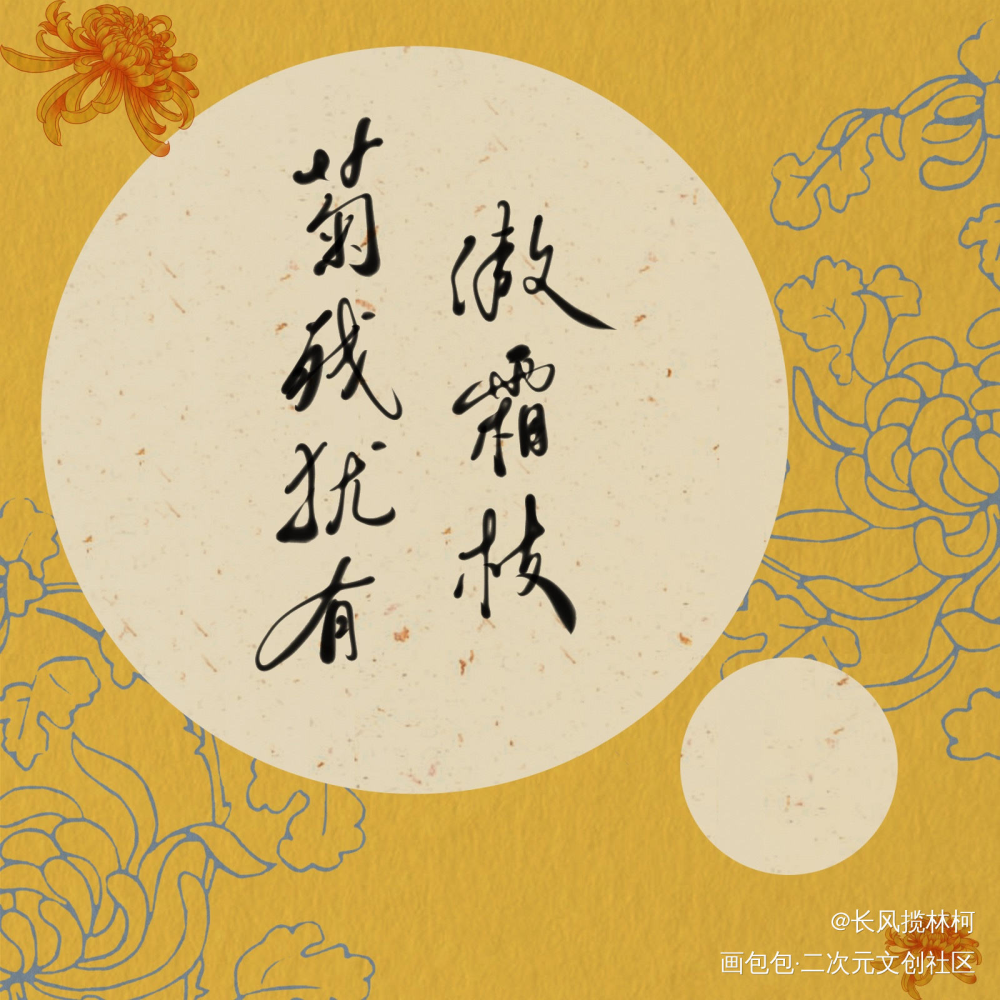 菊残犹有
傲霜枝
@长风揽林柯
画包包·二次元文创社区